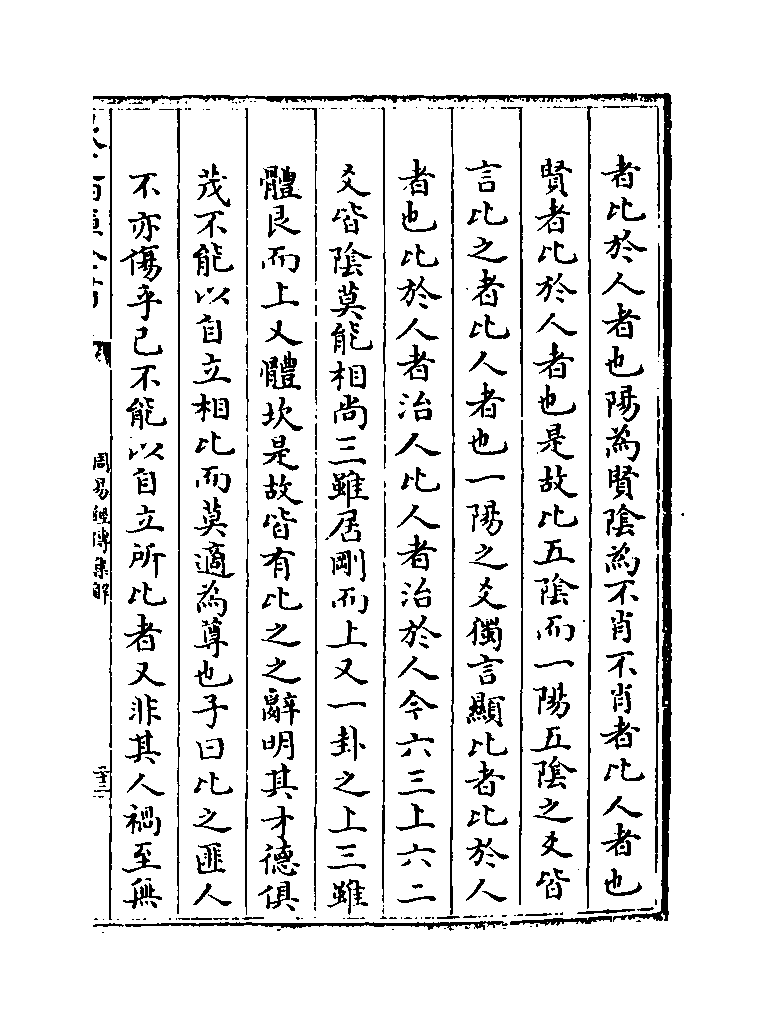 者比於人者也陽為賢陰為不肖不肖者比人者也
賢者比於人者也是故比五陰而一陽五陰之爻皆
言比之者比人者也一陽之爻獨言顯比者比於人
者也比於人者治人比人者治於人今六三上六二
爻皆陰莫能相尚三雖居剛而上又一卦之上三雖
體艮而上又體坎是故皆有比之之辭明其才德俱
茂不能以自立相比而莫適為尊也子曰比之匪人
不亦傷乎己不能以自立所比者又非其人禍至無
周易經傳集解